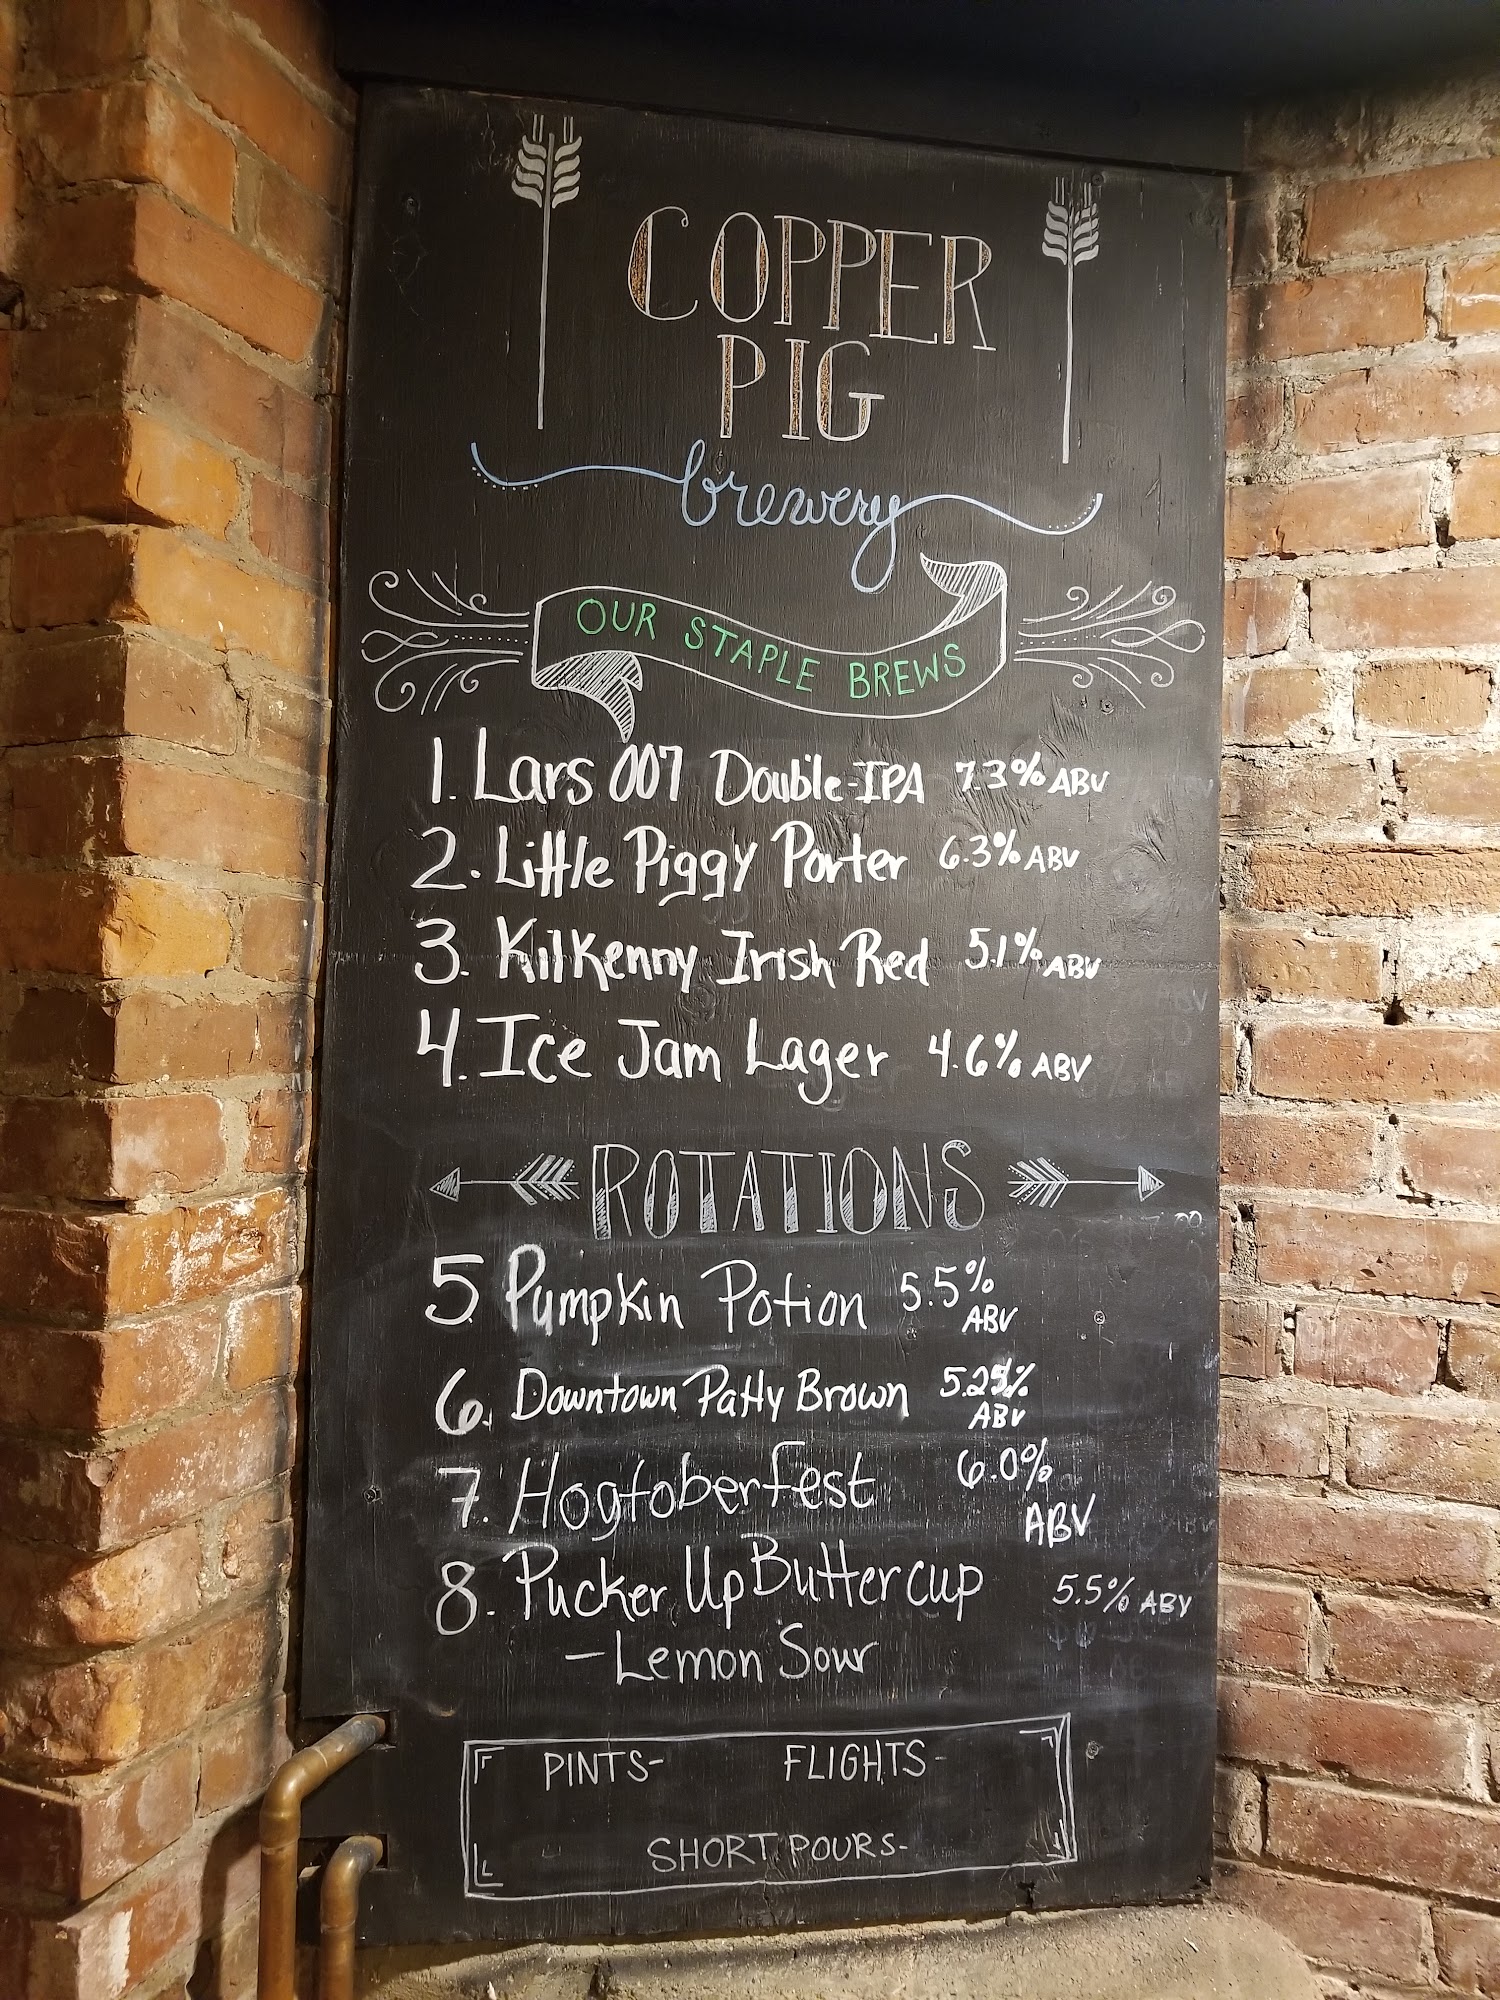 COPPER
PIG
brewery
OUR STAPLE BREWS
1. Lars 007 Double-IPA 7.3% ABV
2. Little Piggy Porter 6.3% ABV
3. Kilkenny Irish Red 5.1% ABV
4. Ice Jam Lager 4.6% ABV
ROTATIONS
5 Pumpkin Potion 5.5% ABV
6. Downtown Patty Brown 5.25% ABV
7. Hogtoberfest 6.0% ABV
8. Pucker Up Buttercup 5.5% ABV
- Lemon Sour
PINTS- FLIGHTS-
SHORT POURS-